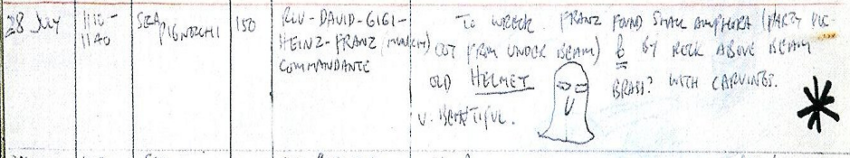 28 July 1110- SEA 150 RUV-DAVID-GIGI- TO WRECK. FRANZ FOUND SMALL AMPHORA (PARTLY
1140 HEINZ-FRANZ OUT FROM UNDER BEAM) & BY ROCK ABOVE BEAM
COMMANDANTE OLD HELMET BRASS? WITH CARVINGS.
V. BEAUTIFUL.